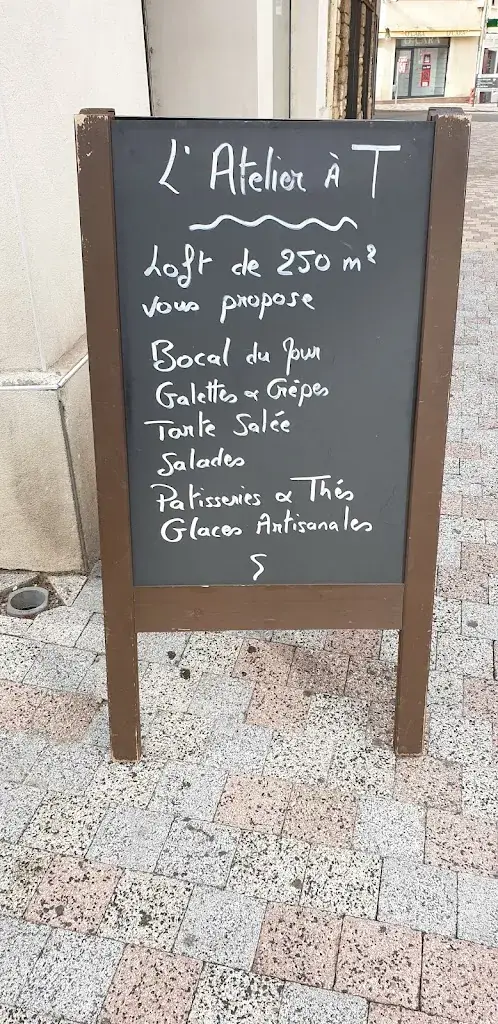 L'Atelier à T
Loft de 250 m²
vous propose
Bocal du jour
Galettes & Crêpes
Tarte Salée
Salades
Patisseries & Thés
Glaces Artisanales